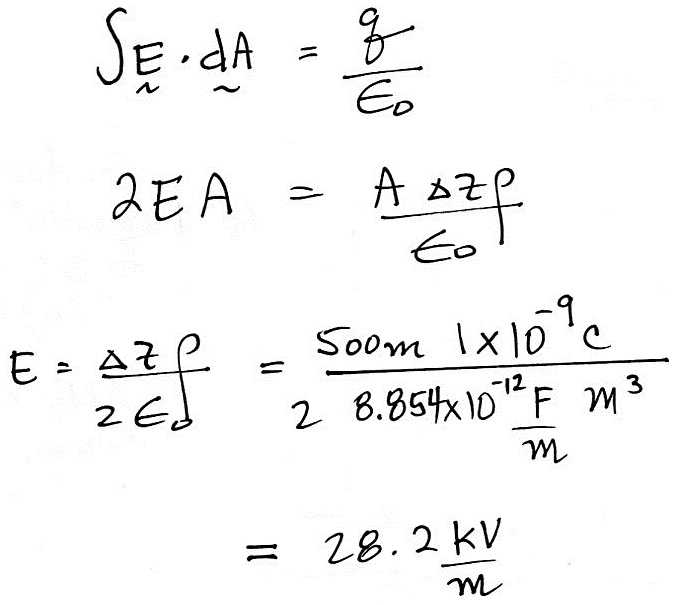 ∫E · dA = q/ϵ₀
2EA = A Δz ρ/ϵ₀
E = Δz ρ/2 ϵ₀ = 500m 1x10⁻⁹ C/2 8.854x10⁻¹² F/m m³
= 28.2 kV/m